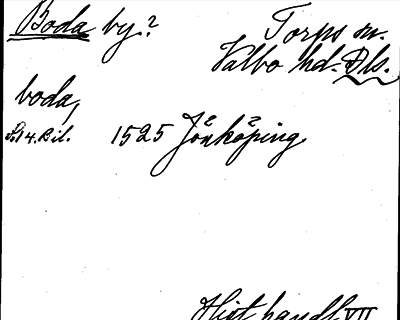 Boda by?
Torps sn.
Valbo hd. Dls.
boda,
14. Bil. 1525 Jönköping
Hist handl VII